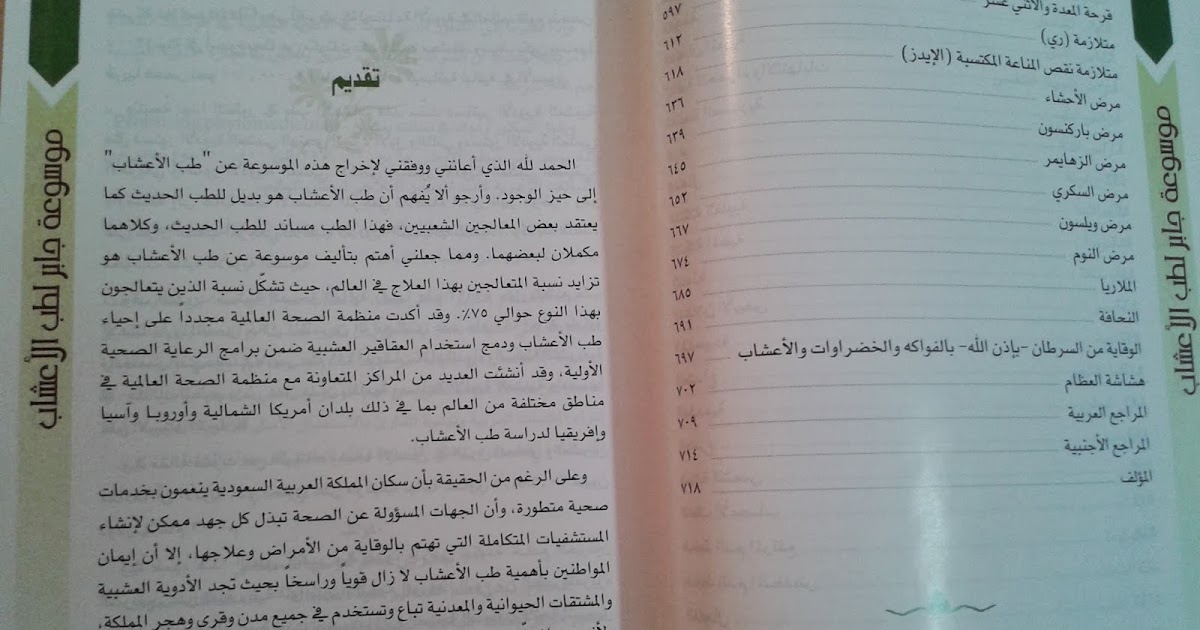 موسوعة جابر لطب الأعشاب
قرحة المعدة والاثني عشر ٥٩٧
متلازمة (ري) ٦١٢
متلازمة نقص المناعة المكتسبة (الإيدز) ٦١٨
مرض الأحشاء ٦٣٦
مرض باركنسون ٦٣٩
مرض الزهايمر ٦٤٥
مرض السكري ٦٥٢
مرض ويلسون ٦٦٧
مرض النوم ٦٧٤
الملاريا ٦٨٥
النحافة ٦٩١
الوقاية من السرطان -بإذن الله- بالفواكه والخضراوات والأعشاب ٦٩٧
هشاشة العظام ٧٠٢
المراجع العربية ٧٠٩
المراجع الأجنبية ٧١٤
المؤلف ٧١٨
تقديم
الحمد لله الذي أعانني ووفقني لإخراج هذه الموسوعة عن "طب الأعشاب"
إلى حيز الوجود. وأرجو ألا يُفهم أن طب الأعشاب هو بديل للطب الحديث كما
يعتقد بعض المعالجين الشعبيين، فهذا الطب مساند للطب الحديث، وكلاهما
مكملان لبعضهما. ومما جعلني أهتم بتأليف موسوعة عن طب الأعشاب هو
تزايد نسبة المتعالجين بهذا العلاج في العالم، حيث تشكّل نسبة الذين يتعالجون
بهذا النوع حوالي ٧٥٪. وقد أكدت منظمة الصحة العالمية مجدداً على إحياء
طب الأعشاب ودمج استخدام العقاقير العشبية ضمن برامج الرعاية الصحية
الأولية، وقد أنشئت العديد من المراكز المتعاونة مع منظمة الصحة العالمية في
مناطق مختلفة من العالم بما في ذلك بلدان أمريكا الشمالية وأوروبا وآسيا
وإفريقيا لدراسة طب الأعشاب.
وعلى الرغم من الحقيقة بأن سكان المملكة العربية السعودية ينعمون بخدمات
صحية متطورة، وأن الجهات المسؤولة عن الصحة تبذل كل جهد ممكن لإنشاء
المستشفيات المتكاملة التي تهتم بالوقاية من الأمراض وعلاجها، إلا أن إيمان
المواطنين بأهمية طب الأعشاب لا زال قوياً وراسخاً بحيث تجد الأدوية العشبية
والمشتقات الحيوانية والمعدنية تباع وتستخدم في جميع مدن وقرى وهجر المملكة،
موسوعة جابر لطب الأعشاب